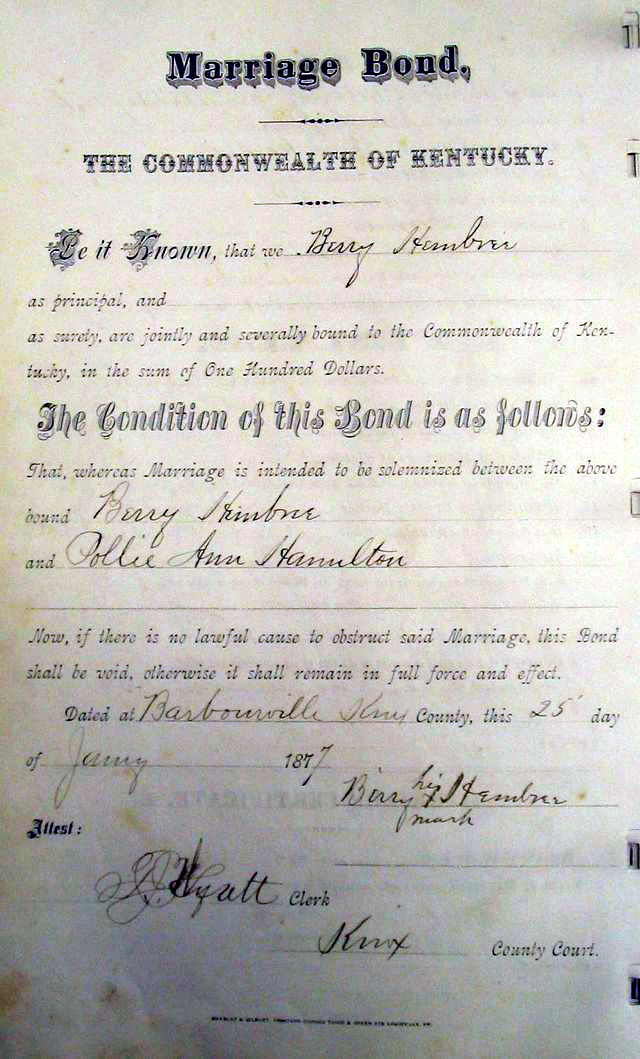 Marriage Bond,
THE COMMONWEALTH OF KENTUCKY.
Be it Known, that we Berry Hembree
as principal, and
as surety, are jointly and severally bound to the Commonwealth of Ken-
tucky, in the sum of One Hundred Dollars.
The Condition of this Bond is as follows:
That, whereas Marriage is intended to be solemnized between the above
bound Berry Hembree
and Pollie Ann Hamilton
Now, if there is no lawful cause to obstruct said Marriage, this Bond
shall be void, otherwise it shall remain in full force and effect.
Dated at Barbourville Knox County, this 25 day
of Jany 1877
Berry his x Hembree
mark
Attest:
Hyatt Clerk
Knox County Court.